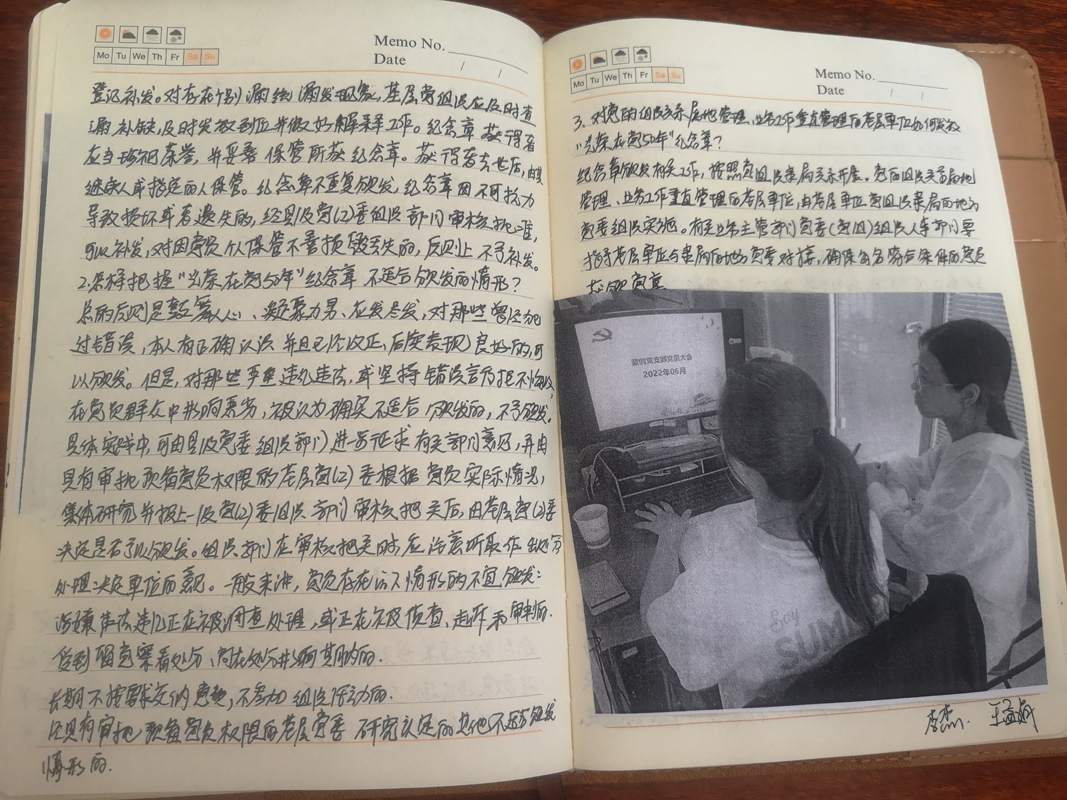 Memo No.
Date / /
Mo Tu We Th Fr Sa Su
登记补发。对存在个别漏统漏发现象,基层党组织应及时查
漏补缺,及时发放到位并做好解释工作。纪念章获得者
应当珍视荣誉,并妥善保管所获纪念章。获得者去世后,由其
继承人或指定的人保管。纪念章不重复颁发,纪念章因不可抗力
导致损坏或者遗失的,经县级党(工)委组织部门审核批准,
可以补发,对因党员个人保管不善损毁丢失的,原则上不予补发。
2.怎样把握“光荣在党50年”纪念章不适合颁发的情形?
总的原则是 人心、凝聚力量、应发尽发,对那些曾经犯
过错误,本人有正确认识并且已经改正,后续表现良好的,可
以颁发。但是,对那些严重违纪违法,或坚持错误言行拒不悔改,
在党员群众中影响恶劣,被认为确实不适合颁发的,不予颁发。
具体实践中,可由县级党委组织部门进一步征求有关部门意见,并由
具有审批预备党员权限的基层党(工)委根据党员实际情况,
集体研究并报上一级党(工)委组织部门审核把关后,由基层党(工)委
决定是否予以颁发。组织部门在审核把关时,应注意听取作出处分
处理决定单位的意见。一般来讲,党员存在以下情形的不宜颁发:
涉嫌严重违纪正在被调查处理,或正在被侦查、起诉和审判的.
受到留党察看处分、尚在处分影响期的.
长期不按要求交纳党费,不参加组织活动的.
还具有审批预备党员权限的基层党委研究认定的其他不适宜颁发
情形的.
Memo No.
Date / /
Mo Tu We Th Fr Sa Su
3、对党的组织关系属地管理、业务工作垂直管理的基层单位如何发放
“光荣在党50年”纪念章?
纪念章颁发相关工作,按照党组织隶属关系开展。党的组织关系属地
管理、业务工作垂直管理的基层单位,由基层单位党组织隶属的地方
党委组织实施。有关业务主管部门党委(党组)组织人事部门要
指导基层单位与隶属的地方党委对接,确保每名符合条件的党员
党支部党员大会
2022年06月
Say
SUM
李杰.